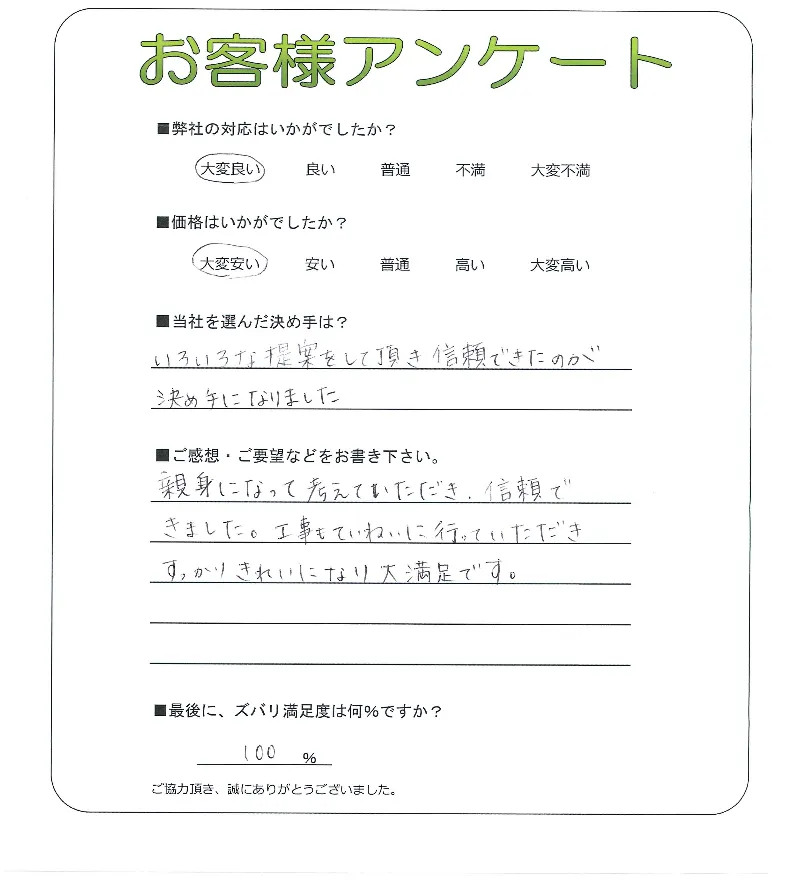 お客様アンケート
■弊社の対応はいかがでしたか？
大変良い 良い 普通 不満 大変不満
■価格はいかがでしたか？
大変安い 安い 普通 高い 大変高い
■当社を選んだ決め手は？
いろいろな提案をして頂き信頼できたのが
決め手になりました
■ご感想・ご要望などをお書き下さい。
親身になって考えていただき、信頼で
きました。工事もていねいに行っていただき
すっかりきれいになり大満足です。
■最後に、ズバリ満足度は何％ですか？
100 %
ご協力頂き、誠にありがとうございました。